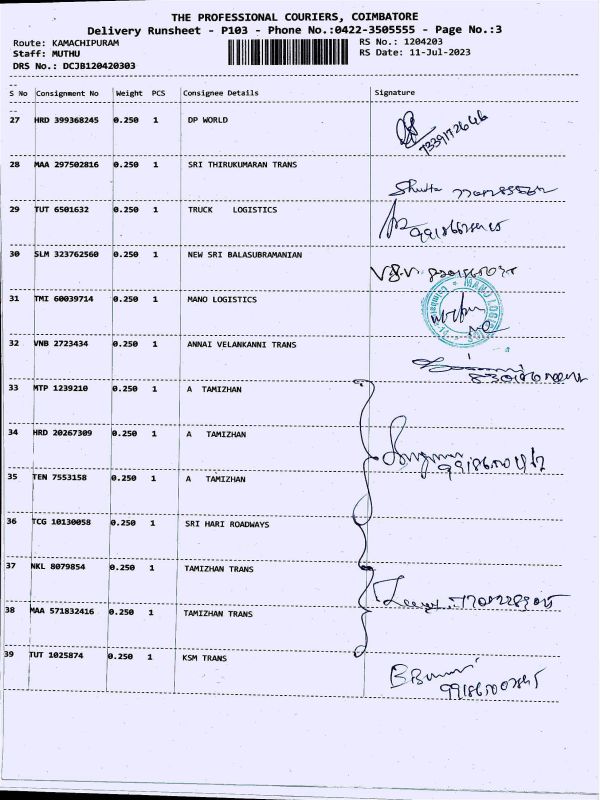 THE PROFESSIONAL COURIERS, COIMBATORE
Delivery Runsheet - P103 - Phone No.:0422-3505555 - Page No.:3
Route: KAMACHIPURAM RS No.: 1204203
Staff: MUTHU RS Date: 11-Jul-2023
DRS No.: DCJB120420303
S No Consignment No Weight PCS Consignee Details Signature
27 HRD 399368245 0.250 1 DP WORLD
28 MAA 297502816 0.250 1 SRI THIRUKUMARAN TRANS
29 TUT 6501632 0.250 1 TRUCK LOGISTICS
30 SLM 323762560 0.250 1 NEW SRI BALASUBRAMANIAN
31 TMI 60039714 0.250 1 MANO LOGISTICS
32 VNB 2723434 0.250 1 ANNAI VELANKANNI TRANS
33 MTP 1239210 0.250 1 A TAMIZHAN
34 HRD 20267309 0.250 1 A TAMIZHAN
35 TEN 7553158 0.250 1 A TAMIZHAN
36 TCG 10130058 0.250 1 SRI HARI ROADWAYS
37 NKL 8079854 0.250 1 TAMIZHAN TRANS
38 MAA 571832416 0.250 1 TAMIZHAN TRANS
39 TUT 1025874 0.250 1 KSM TRANS